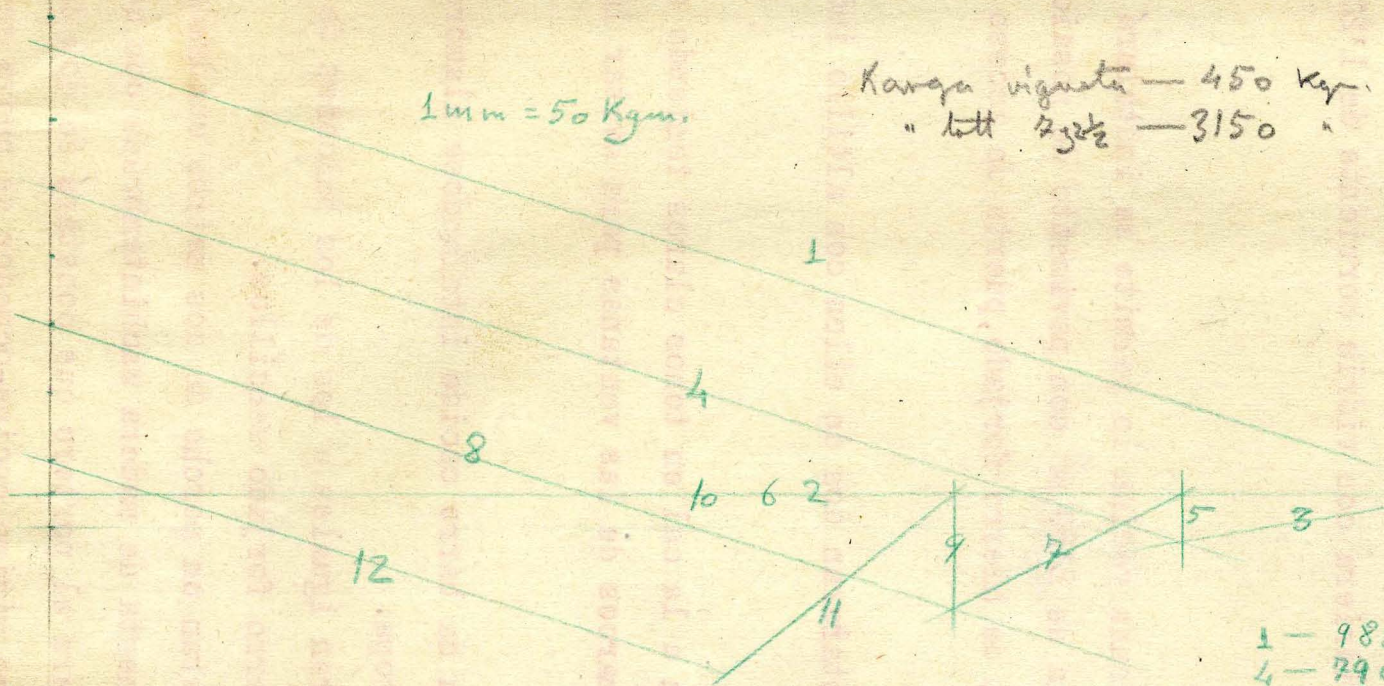 1mm = 50 Kgm.
Karga vigueta — 450 Kgr.
" tott 7 y 2½ — 3150 "
1
4
8
10 6 2
5
3
9
7
12
11
1 — 98
4 — 79